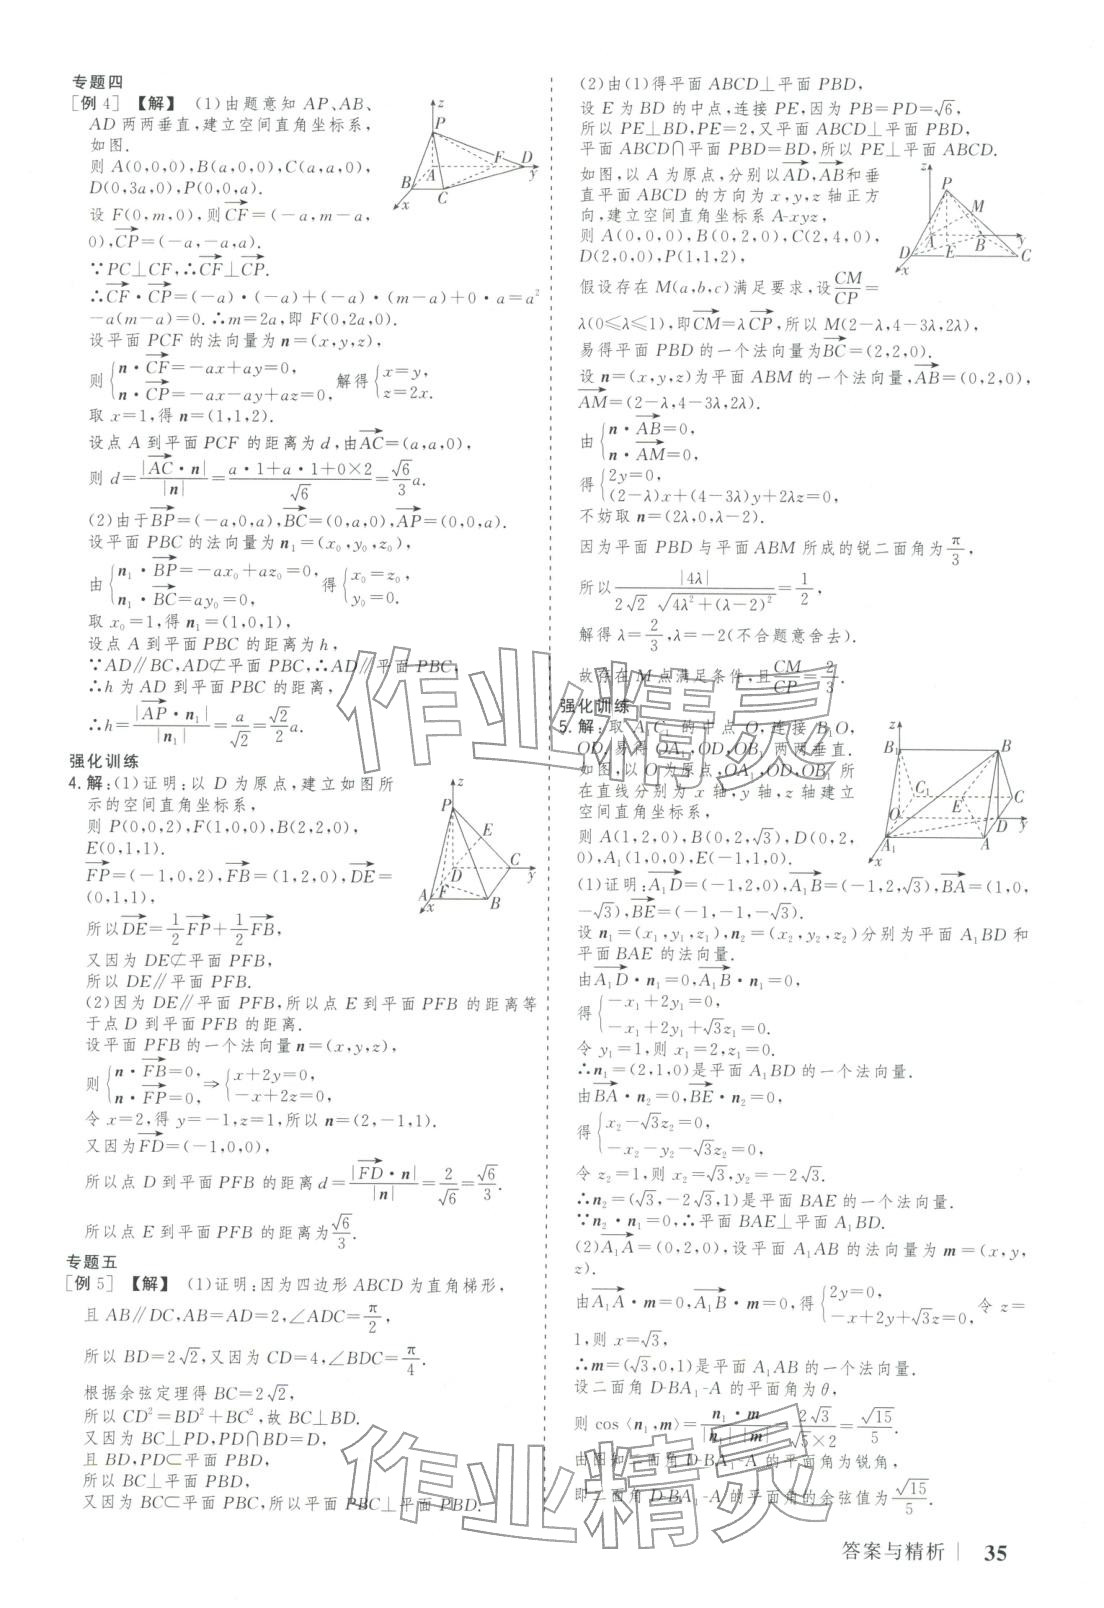 专题四
[例4]【解】 (1)由题意知 AP,AB,
AD两两垂直,建立空间直角坐标系,
如图.
则A(0,0,0),B(a,0,0),C(a,a,0),
D(0,3a,0),P(0,0,a).
设F(0,m,0),则$\overrightarrow{CF}$=(-a,m-a,
0),$\overrightarrow{CP}$=(-a,-a,a).
∵PC⊥CF,∴$\overrightarrow{CF}$⊥$\overrightarrow{CP}$.
∴$\overrightarrow{CF}$·$\overrightarrow{CP}$=(-a)·(-a)+(-a)·(m-a)+0·a=a²
-a(m-a)=0.∴m=2a,即F(0,2a,0).
设平面PCF的法向量为n=(x,y,z),
则{n·$\overrightarrow{CF}$=-ax+ay=0, n·$\overrightarrow{CP}$=-ax-ay+az=0, 解得{x=y, z=2x.
取x=1,得n=(1,1,2).
设点A到平面PCF的距离为d,由$\overrightarrow{AC}$=(a,a,0),
则d=$\frac{|\overrightarrow{AC}·n|}{|n|}$=$\frac{a·1+a·1+0×2}{\sqrt{6}}$=$\frac{\sqrt{6}}{3}$a.
(2)由于$\overrightarrow{BP}$=(-a,0,a),$\overrightarrow{BC}$=(0,a,0),$\overrightarrow{AP}$=(0,0,a).
设平面PBC的法向量为n₁=(x₀,y₀,z₀),
由{n₁·$\overrightarrow{BP}$=-ax₀+az₀=0, n₁·$\overrightarrow{BC}$=ay₀=0, 得{x₀=z₀, y₀=0.
取x₀=1,得n₁=(1,0,1),
设点A到平面PBC的距离为h,
∵AD∥BC,AD⊄平面PBC,∴AD∥平面PBC,
∴h为AD到平面PBC的距离,
∴h=$\frac{|\overrightarrow{AP}·n₁|}{|n₁|}$=$\frac{a}{\sqrt{2}}$=$\frac{\sqrt{2}}{2}$a.
强化训练
4.解:(1)证明:以D为原点,建立如图所
示的空间直角坐标系,
则P(0,0,2),F(1,0,0),B(2,2,0),
E(0,1,1).
$\overrightarrow{FP}$=(-1,0,2),$\overrightarrow{FB}$=(1,2,0),$\overrightarrow{DE}$=
(0,1,1),
所以$\overrightarrow{DE}$=$\frac{1}{2}$$\overrightarrow{FP}$+$\frac{1}{2}$$\overrightarrow{FB}$,
又因为DE⊄平面PFB,
所以DE∥平面PFB.
(2)因为DE∥平面PFB,所以点E到平面PFB的距离等
于点D到平面PFB的距离.
设平面PFB的一个法向量n=(x,y,z),
则{n·$\overrightarrow{FB}$=0, n·$\overrightarrow{FP}$=0, ⇒{x+2y=0, -x+2z=0,
令x=2,得y=-1,z=1,所以n=(2,-1,1).
又因为$\overrightarrow{FD}$=(-1,0,0),
所以点D到平面PFB的距离d=$\frac{|\overrightarrow{FD}·n|}{|n|}$=$\frac{2}{\sqrt{6}}$=$\frac{\sqrt{6}}{3}$.
所以点E到平面PFB的距离为$\frac{\sqrt{6}}{3}$.
专题五
[例5]【解】 (1)证明:因为四边形ABCD为直角梯形,
且AB∥DC,AB=AD=2,∠ADC=$\frac{π}{2}$,
所以BD=2$\sqrt{2}$,又因为CD=4,∠BDC=$\frac{π}{4}$.
根据余弦定理得BC=2$\sqrt{2}$,
所以CD²=BD²+BC²,故BC⊥BD.
又因为BC⊥PD,PD∩BD=D,
且BD,PD⊂平面PBD,
所以BC⊥平面PBD,
又因为BC⊂平面PBC,所以平面PBC⊥平面PBD.
(2)由(1)得平面ABCD⊥平面PBD,
设E为BD的中点,连接PE,因为PB=PD=$\sqrt{6}$,
所以PE⊥BD,PE=2,又平面ABCD⊥平面PBD,
平面ABCD∩平面PBD=BD,所以PE⊥平面ABCD.
如图,以A为原点,分别以$\overrightarrow{AD}$,$\overrightarrow{AB}$和垂
直平面ABCD的方向为x,y,z轴正方
向,建立空间直角坐标系A-xyz,
则A(0,0,0),B(0,2,0),C(2,4,0),
D(2,0,0),P(1,1,2),
假设存在M(a,b,c)满足要求,设$\frac{CM}{CP}$=
λ(0≤λ≤1),即$\overrightarrow{CM}$=λ$\overrightarrow{CP}$,所以M(2-λ,4-3λ,2λ),
易得平面PBD的一个法向量为$\overrightarrow{BC}$=(2,2,0).
设n=(x,y,z)为平面ABM的一个法向量,$\overrightarrow{AB}$=(0,2,0),
$\overrightarrow{AM}$=(2-λ,4-3λ,2λ).
由{n·$\overrightarrow{AB}$=0, n·$\overrightarrow{AM}$=0,
得{2y=0, (2-λ)x+(4-3λ)y+2λz=0,
不妨取n=(2λ,0,λ-2).
因为平面PBD与平面ABM所成的锐二面角为$\frac{π}{3}$,
所以$\frac{|4λ|}{2\sqrt{2}\sqrt{4λ²+(λ-2)²}}$=$\frac{1}{2}$,
解得λ=$\frac{2}{3}$,λ=-2(不合题意舍去).
故存在M点满足条件,且$\frac{CM}{CP}$=$\frac{2}{3}$.
强化训练
5.解:取A₁C₁的中点O,连接B₁O,
OD,易得OA₁,OD,OB₁两两垂直.
如图,以O为原点,OA₁,OD,OB₁所
在直线分别为x轴,y轴,z轴建立
空间直角坐标系,
则A(1,2,0),B(0,2,$\sqrt{3}$),D(0,2,
0),A₁(1,0,0),E(-1,1,0).
(1)证明:$\overrightarrow{A₁D}$=(-1,2,0),$\overrightarrow{A₁B}$=(-1,2,$\sqrt{3}$),$\overrightarrow{BA}$=(1,0,
-$\sqrt{3}$),$\overrightarrow{BE}$=(-1,-1,-$\sqrt{3}$).
设n₁=(x₁,y₁,z₁),n₂=(x₂,y₂,z₂)分别为平面A₁BD和
平面BAE的法向量.
由$\overrightarrow{A₁D}$·n₁=0,$\overrightarrow{A₁B}$·n₁=0,
得{-x₁+2y₁=0, -x₁+2y₁+$\sqrt{3}$z₁=0.
令y₁=1,则x₁=2,z₁=0.
∴n₁=(2,1,0)是平面A₁BD的一个法向量.
由$\overrightarrow{BA}$·n₂=0,$\overrightarrow{BE}$·n₂=0,
得{x₂-$\sqrt{3}$z₂=0, -x₂-y₂-$\sqrt{3}$z₂=0,
令z₂=1,则x₂=$\sqrt{3}$,y₂=-2$\sqrt{3}$.
∴n₂=($\sqrt{3}$,-2$\sqrt{3}$,1)是平面BAE的一个法向量.
∵n₂·n₁=0,∴平面BAE⊥平面A₁BD.
(2)$\overrightarrow{A₁A}$=(0,2,0),设平面A₁AB的法向量为m=(x,y,
z).
由$\overrightarrow{A₁A}$·m=0,$\overrightarrow{A₁B}$·m=0,得{2y=0, -x+2y+$\sqrt{3}$z=0, 令z=
1,则x=$\sqrt{3}$,
∴m=($\sqrt{3}$,0,1)是平面A₁AB的一个法向量.
设二面角D-BA₁-A的平面角为θ,
则cos〈n₁,m〉=$\frac{n₁·m}{|n₁||m|}$=$\frac{2\sqrt{3}}{\sqrt{5}×2}$=$\frac{\sqrt{15}}{5}$.
由图知二面角D-BA₁-A的平面角为锐角,
即二面角D-BA₁-A的平面角的余弦值为$\frac{\sqrt{15}}{5}$.
作业精灵
作业精灵
答案与精析 | 35